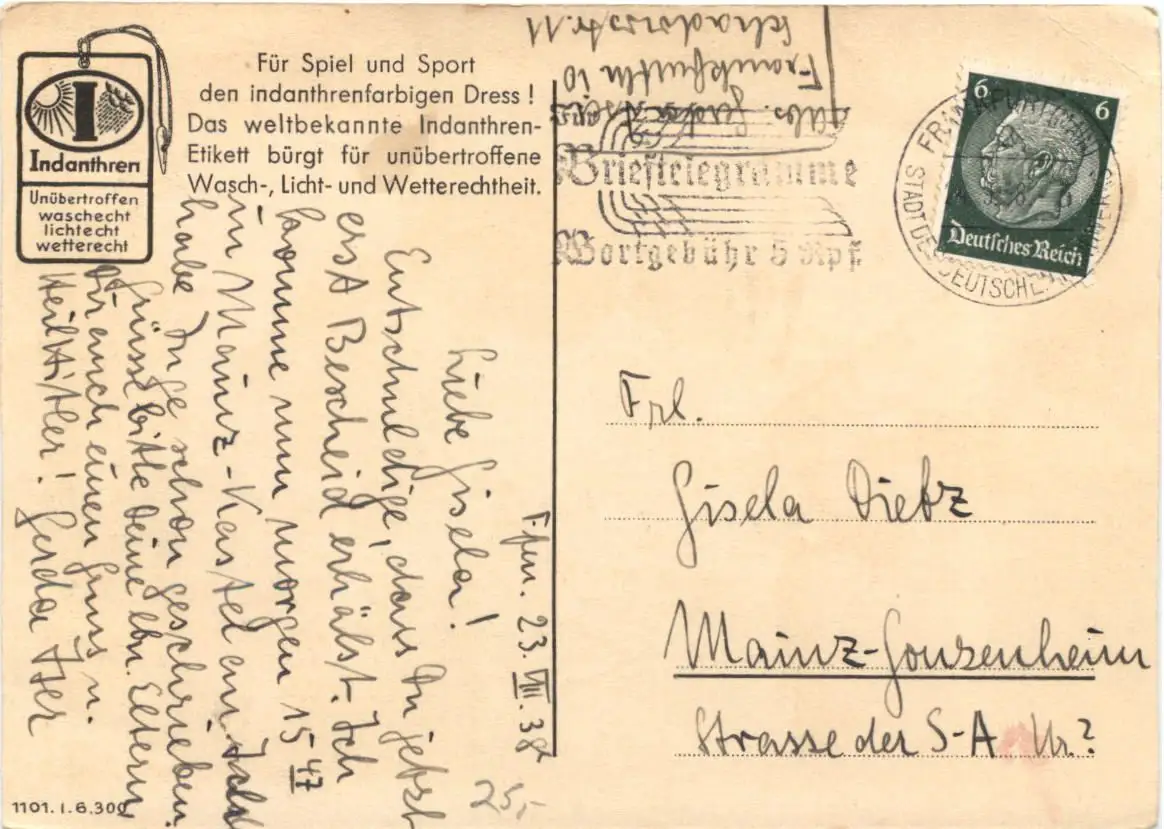 Indanthren
Unübertroffen
waschecht
lichtecht
wetterecht
Für Spiel und Sport
den indanthrenfarbigen Dress!
Das weltbekannte Indanthren-
Etikett bürgt für unübertroffene
Wasch-, Licht- und Wetterechtheit.
Abs. Gerda
Frankfurt/M 10
Schadowstr. 11
Brieftelegramme
Wortgebühr 5 Rpf.
FRANKFURT (MAIN)
STADT DES DEUTSCHEN HANDWERKS
6 6
Deutsches Reich
Ffm. 23. VIII. 38
Liebe Gisela!
Entschuldige, dass Du jetzt
erst Bescheid erhälst. Ich
komme nun morgen 15 47
in Mainz-Kastel an. Ich
habe Inge schon geschrieben.
Grüsse bitte Deine lbn. Eltern
Dir auch einen Gruss u.
Heil Hitler! Gerda
25,-
Frl.
Gisela Dietz
Mainz-Gonsenheim
Strasse der S-A Nr.?
1101.I.6.300